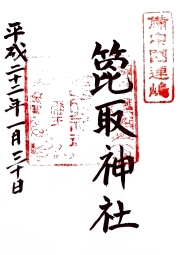 備中國連嶋
箆取神社
平成二十二年一月三十日